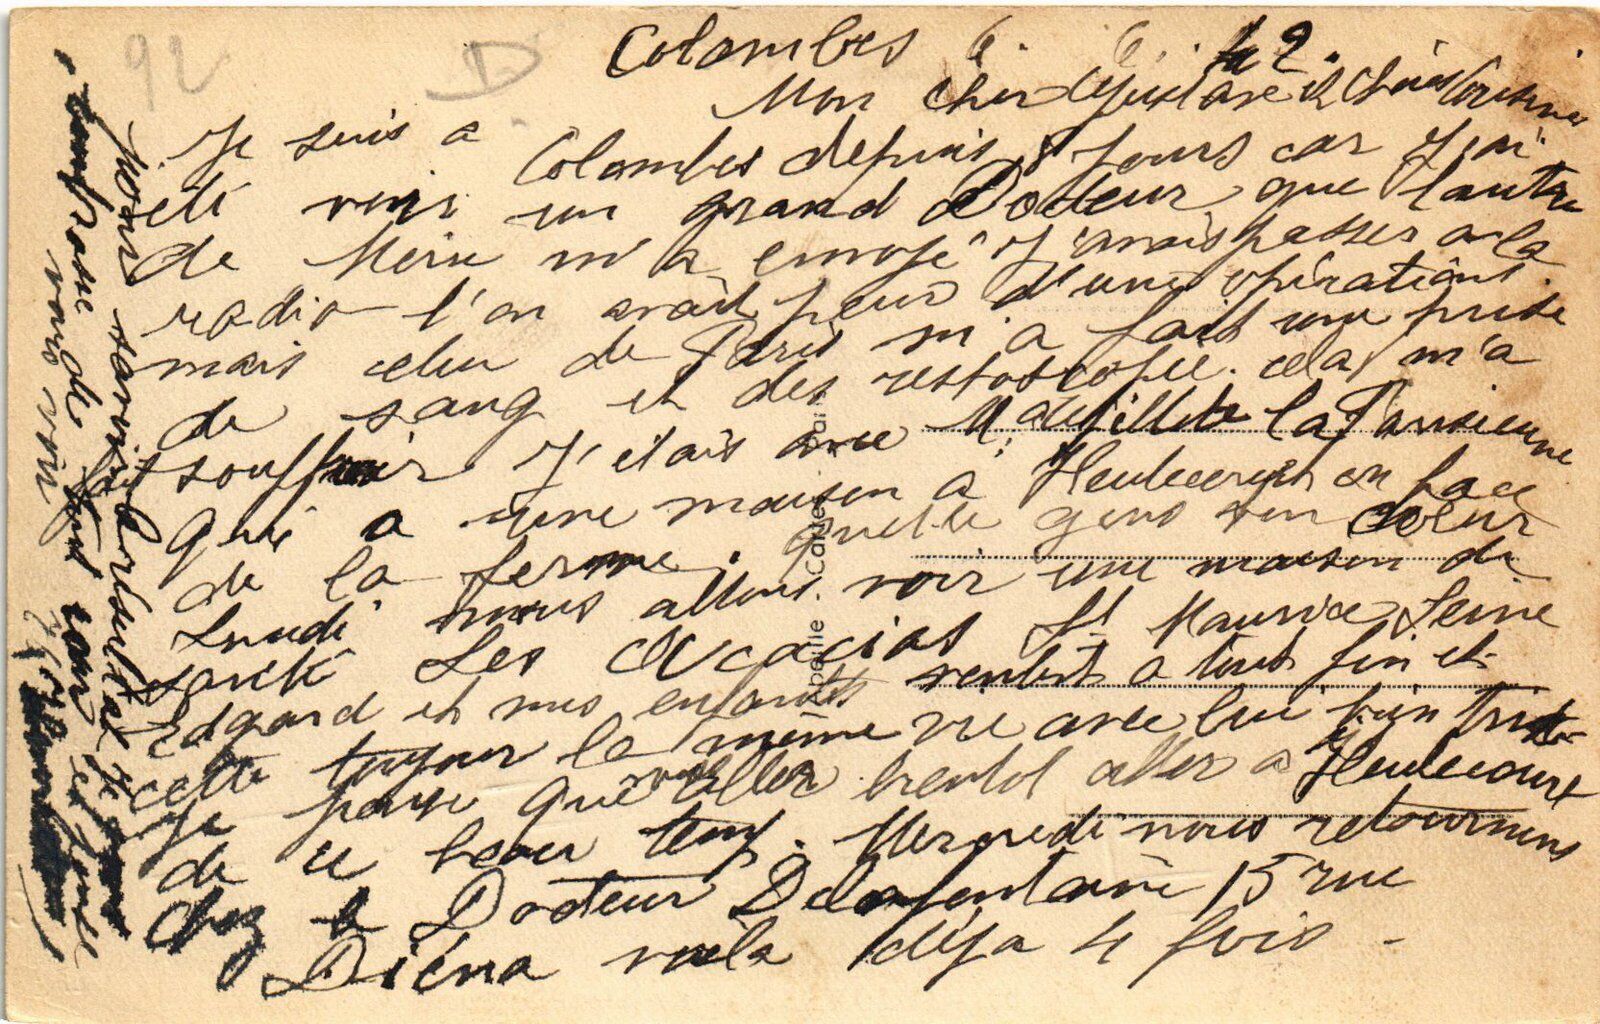 92
D
Colombes 6. 6. 42.
Mon cher Gustave et chère Cousine
Je suis a Colombes depuis 8 jours car J'ai
été voir un grand Docteur que lautre
de Méru m'a envoyé J'avais passer a la
radio l'on avait peur d'une opération
mais celui de Paris m'a fait une prise
de sang et des cela m'a
fait souffrir J'étais avec M. la Parisienne
qui a une maison a Heulecourt en face
de la ferme. quelle gens bon cœur
Lundi nous allons voir une maison de
santé Les Accacias St Maurice Seine
Edgard et mes enfants veulent a tout fin et
cette toujour la même vie avec lui bien Triste
Je pense que vous aller bientot aller a Heulecourt
de ce beau temp. Mercredi nous retournons
chez le Docteur Delafontaine 15 rue
Diéna voila déja 4 fois -
pour savoir le résultat Je vous
embrasse de tout cœur et pense
vous voir
Carte